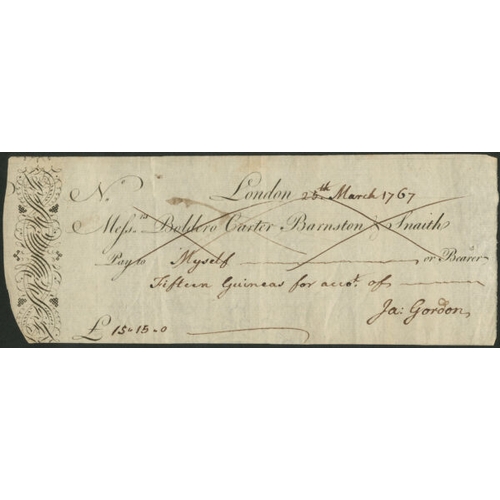 No. London 25th March 1767
Messrs Boldero Carter Barnston & Snaith
Pay to Myself or Bearer
Fifteen Guineas for accot. of
Ja: Gordon
£ 15-15-0